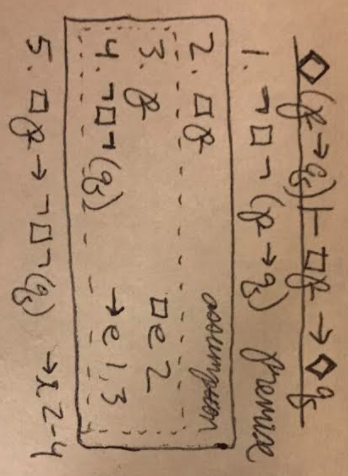 ◇(p→q) ⊢ □p → ◇q
1. ¬□¬(p→q) premise
2. □p assumption
3. p □e 2
4. ¬□¬(q) →e 1,3
5. □p → ¬□¬(q) →i 2-4